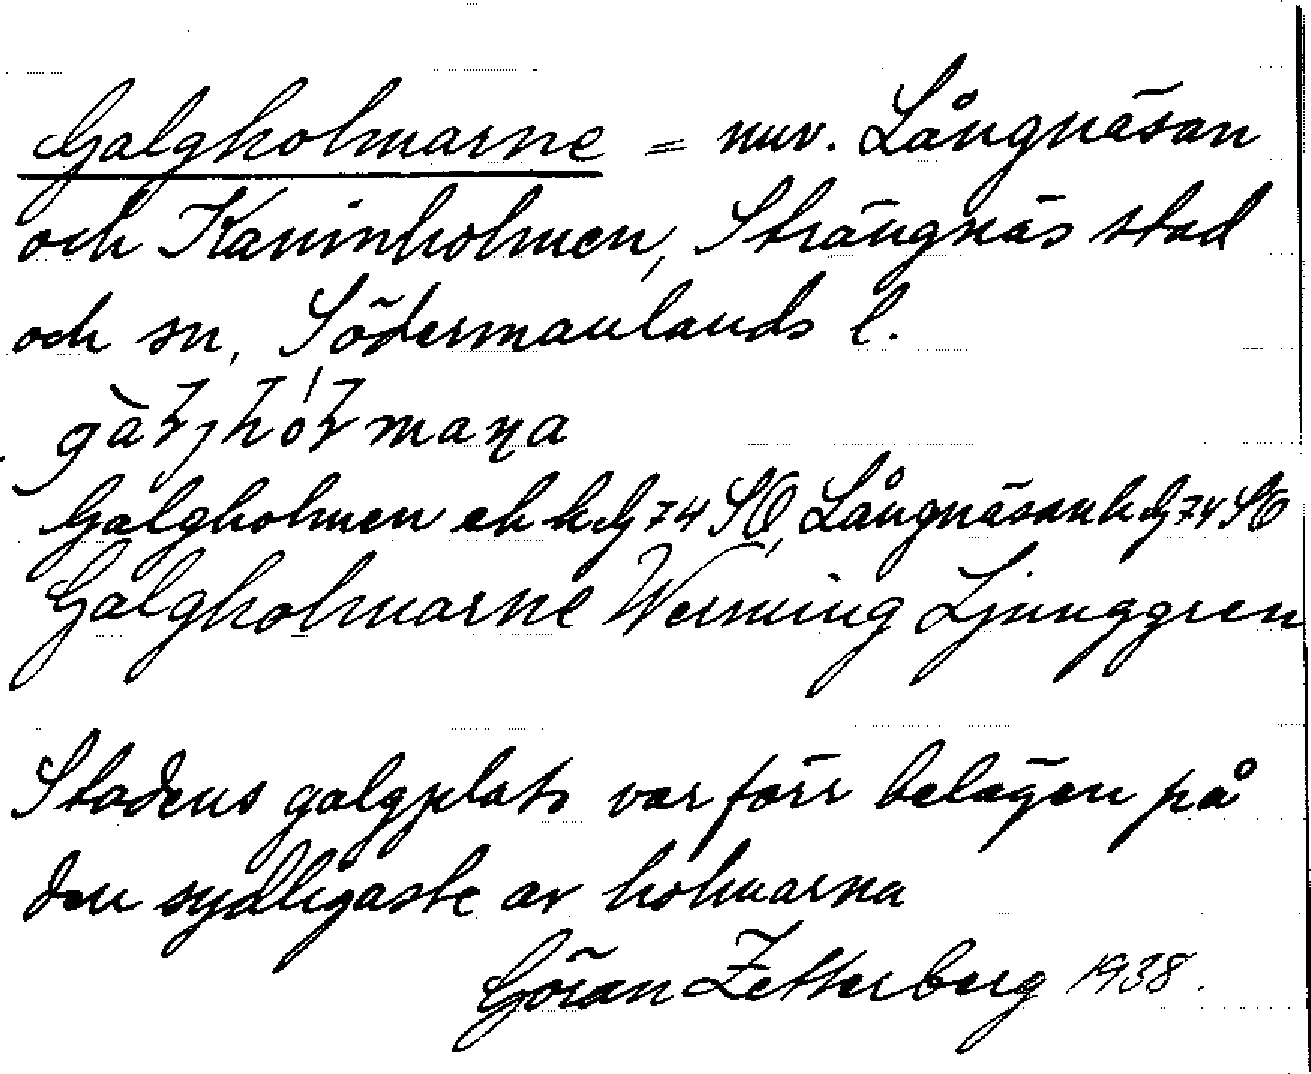 Galgholmarne = nuv. Långnäsan
och Kaninholmen, Strängnäs stad
och sn, Södermanlands l.
Galgholmen ek bl 74 SO, Långnäsan
Galgholmarne Wernning Ljunggren
Stadens galgplats var förr belägen på
den sydligaste av holmarna
Göran Zetterberg 1938.